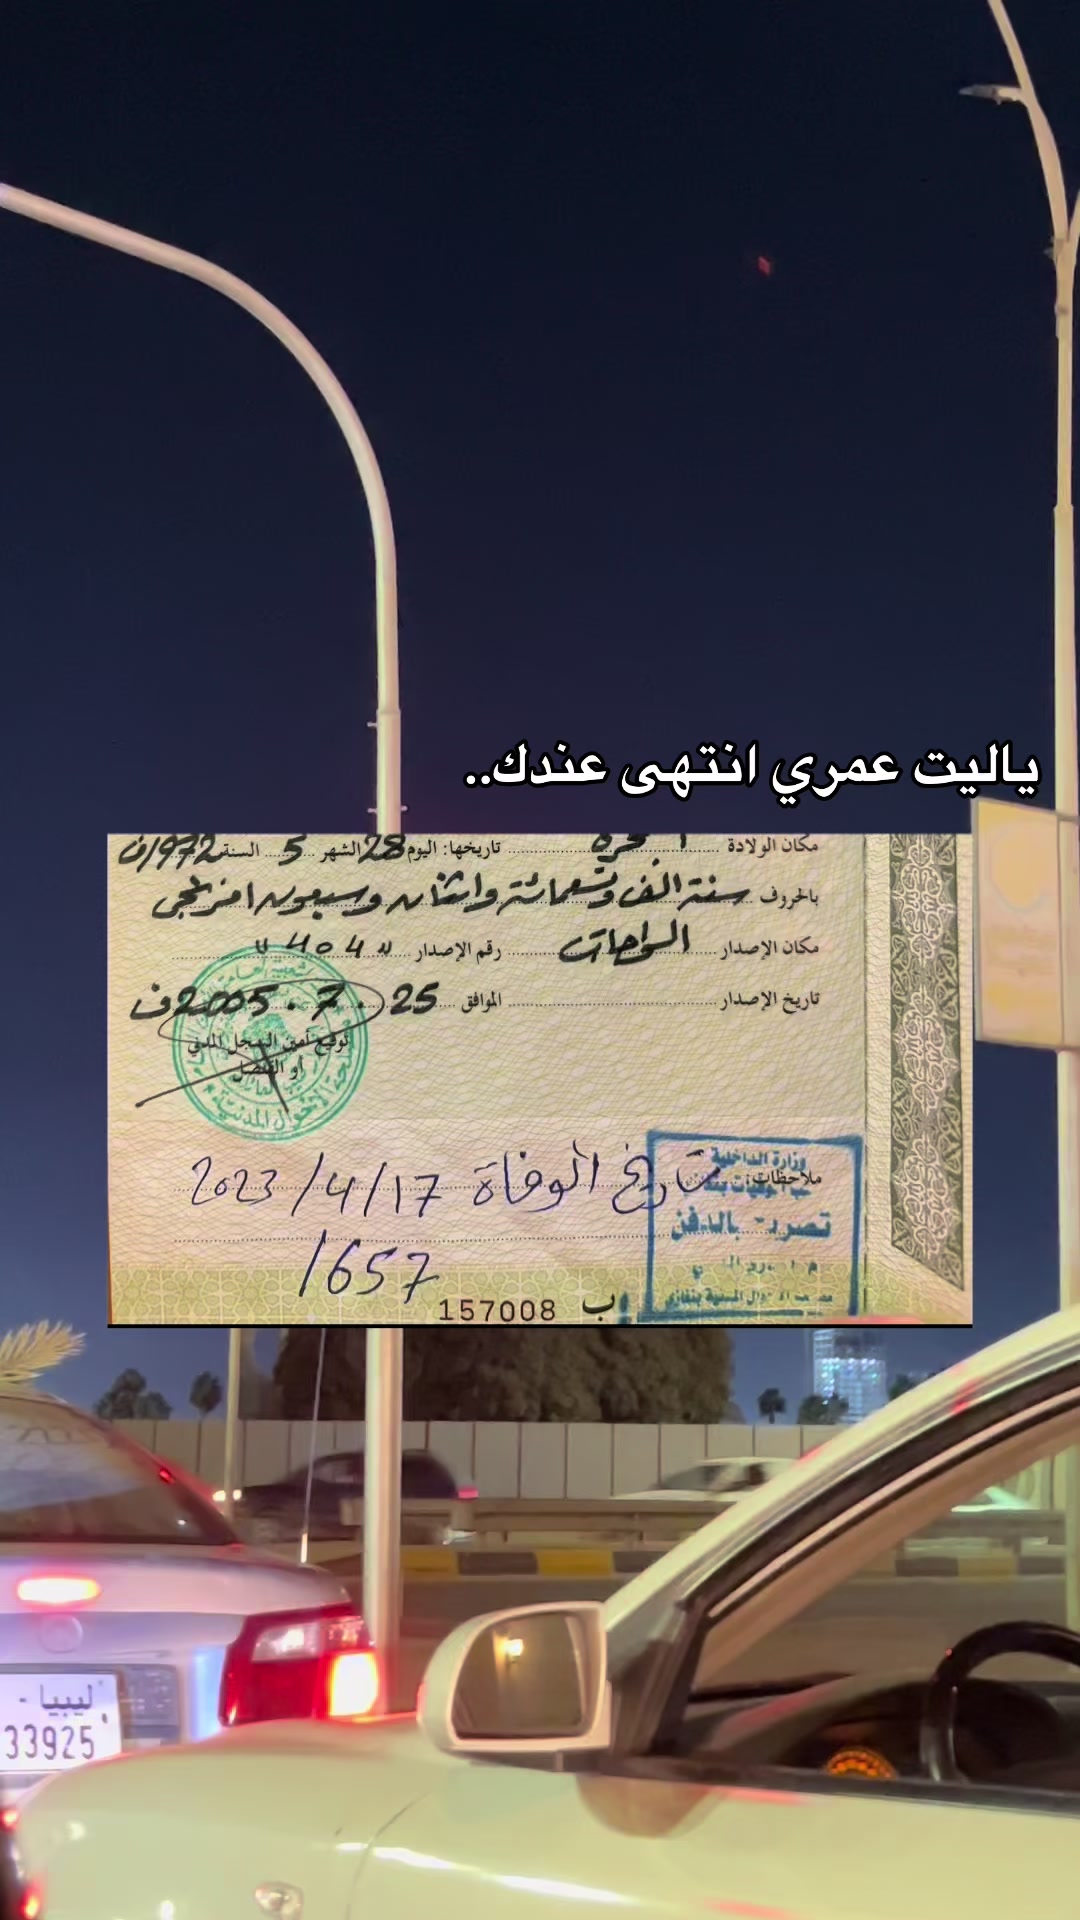 ياليت عمري انتهى عندك..
مكان الولادة تاريخها: اليوم 28 الشهر 5 السنة 1972ف
بالحروف سنة الف وتسعمائة واثنان وسبعون افرنجي
مكان الإصدار الواحات رقم الإصدار "404"
تاريخ الإصدار الموافق 25.7.2005ف
توقيع أمين السجل المدني
أو القنصل
الأحوال المدنية
ملاحظات: تاريخ الوفاة 2023/4/17
1657
وزارة الداخلية
بالدفن
157008 ب
ليبيا -
33925